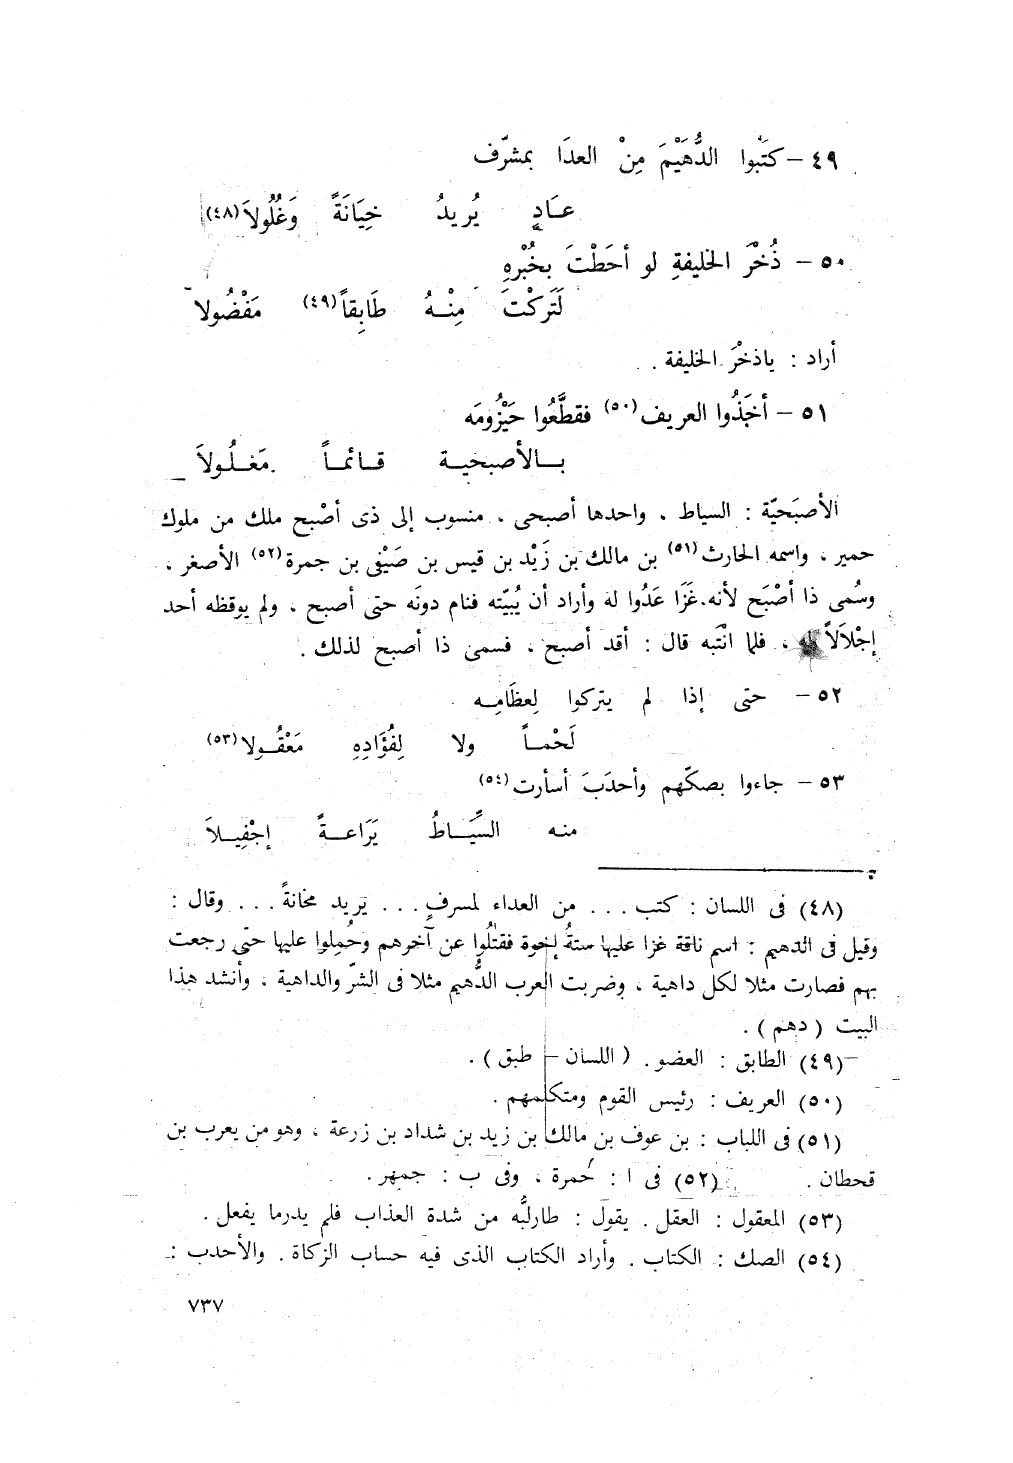 ٤٩ – كتَبُوا الدُّهَيْمَ مِنْ العدَا بمشرّف
عَـادٍ يُريدُ خِيَانَةً وَغُلُولاَ(٤٨)
٥٠ – ذُخْرَ الخليفةِ لو أحَطْتَ بخُبْرهِ
لَتَركْتَ مِنْـهُ طَابِقاً(٤٩) مَفْضُولا
أراد : ياذخْرَ الخليفة .
٥١ – أخَذُوا العريف(٥٠) فقطَّعُوا حَيْزُومَه
بـالأصبحيـة قـائمـاً مَغـلُـولاَ
الأصبَحيّة : السياط ، واحدها أصبحى ، منسوب إلى ذى أصْبح ملك من ملوك
حمير ، واسمه الحارث(٥١) بن مالك بن زَيْد بن قيس بن صَيْفى بن جمرة(٥٢) الأصغر ،
وسُمى ذا أصْبَح لأنه غَزَا عَدُوا له وأراد أن يُبيّته فنام دونَه حتى أصبح ، ولم يوقظه أحد
إجْلاَلاً له ، فلما انْتَبه قال : أقد أصبح ، فسمى ذا أصبح لذلك .
٥٢ – حتى إذا لم يتركوا لِعظَامِـه
لَحْمـاً ولا لِفُؤَادِهِ مَعْقُـولا(٥٣)
٥٣ – جاءوا بصكّهم وأحدَبَ أسأرت(٥٤)
منـه السِّيَـاطُ يَرَاعـةً إجْفِيـلاَ
(٤٨) فى اللسان : كتب . . . من العداء لمسرفٍ . . . يريد مخانةً . . . وقال :
وقيل فى الدهيم : اسم ناقة غزا عليها ستةُ إخوة فقتلُوا عن آخرهم وحُمِلوا عليها حتى رجعت
بهم فصارت مثلا لكل داهية ، وضربت العرب الدُّهيم مثلا فى الشرّ والداهية ، وأنشد هذا
البيت ( دهم ) .
(٤٩) الطابق : العضو . ( اللسان – طبق ) .
(٥٠) العريف : رئيس القوم ومتكلمهم .
(٥١) فى اللباب : بن عوف بن مالك بن زيد بن شداد بن زرعة ، وهو من يعرب بن
قحطان . (٥٢) فى ا : حُمرة ، وفى ب : جمهر .
(٥٣) المعقول : العقل . يقول : طارلبُّه من شدة العذاب فلم يدرما يفعل .
(٥٤) الصك : الكتاب . وأراد الكتاب الذى فيه حساب الزكاة . والأحدب :
٧٣٧